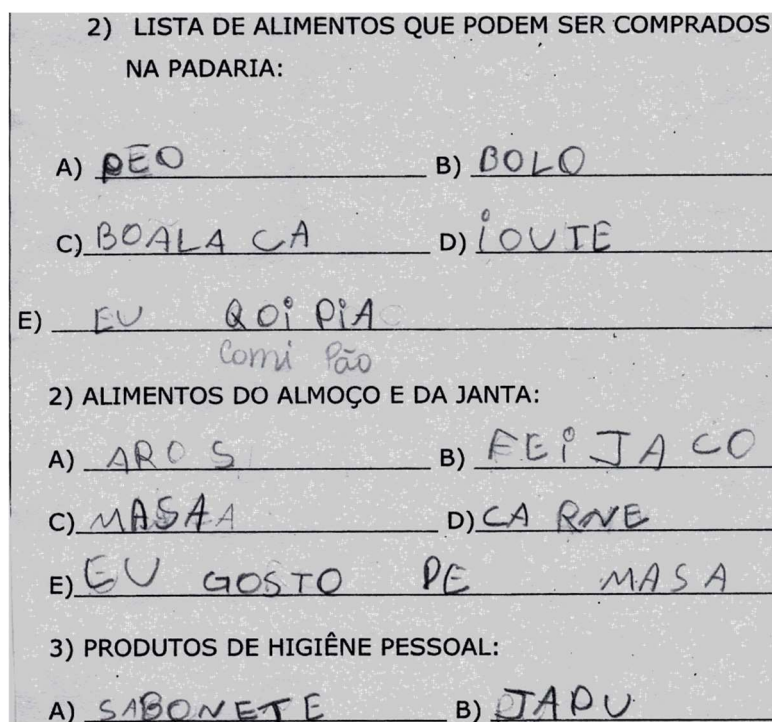 2) LISTA DE ALIMENTOS QUE PODEM SER COMPRADOS
NA PADARIA:
A) PEO B) BOLO
C) BOALA CA D) IOUTE
E) EU QOI PIA
Comi Pão
2) ALIMENTOS DO ALMOÇO E DA JANTA:
A) AROS B) FEIJACO
C) MASAA D) CARNE
E) EU GOSTO DE MASA
3) PRODUTOS DE HIGIÊNE PESSOAL:
A) SABONETE B) JAPU